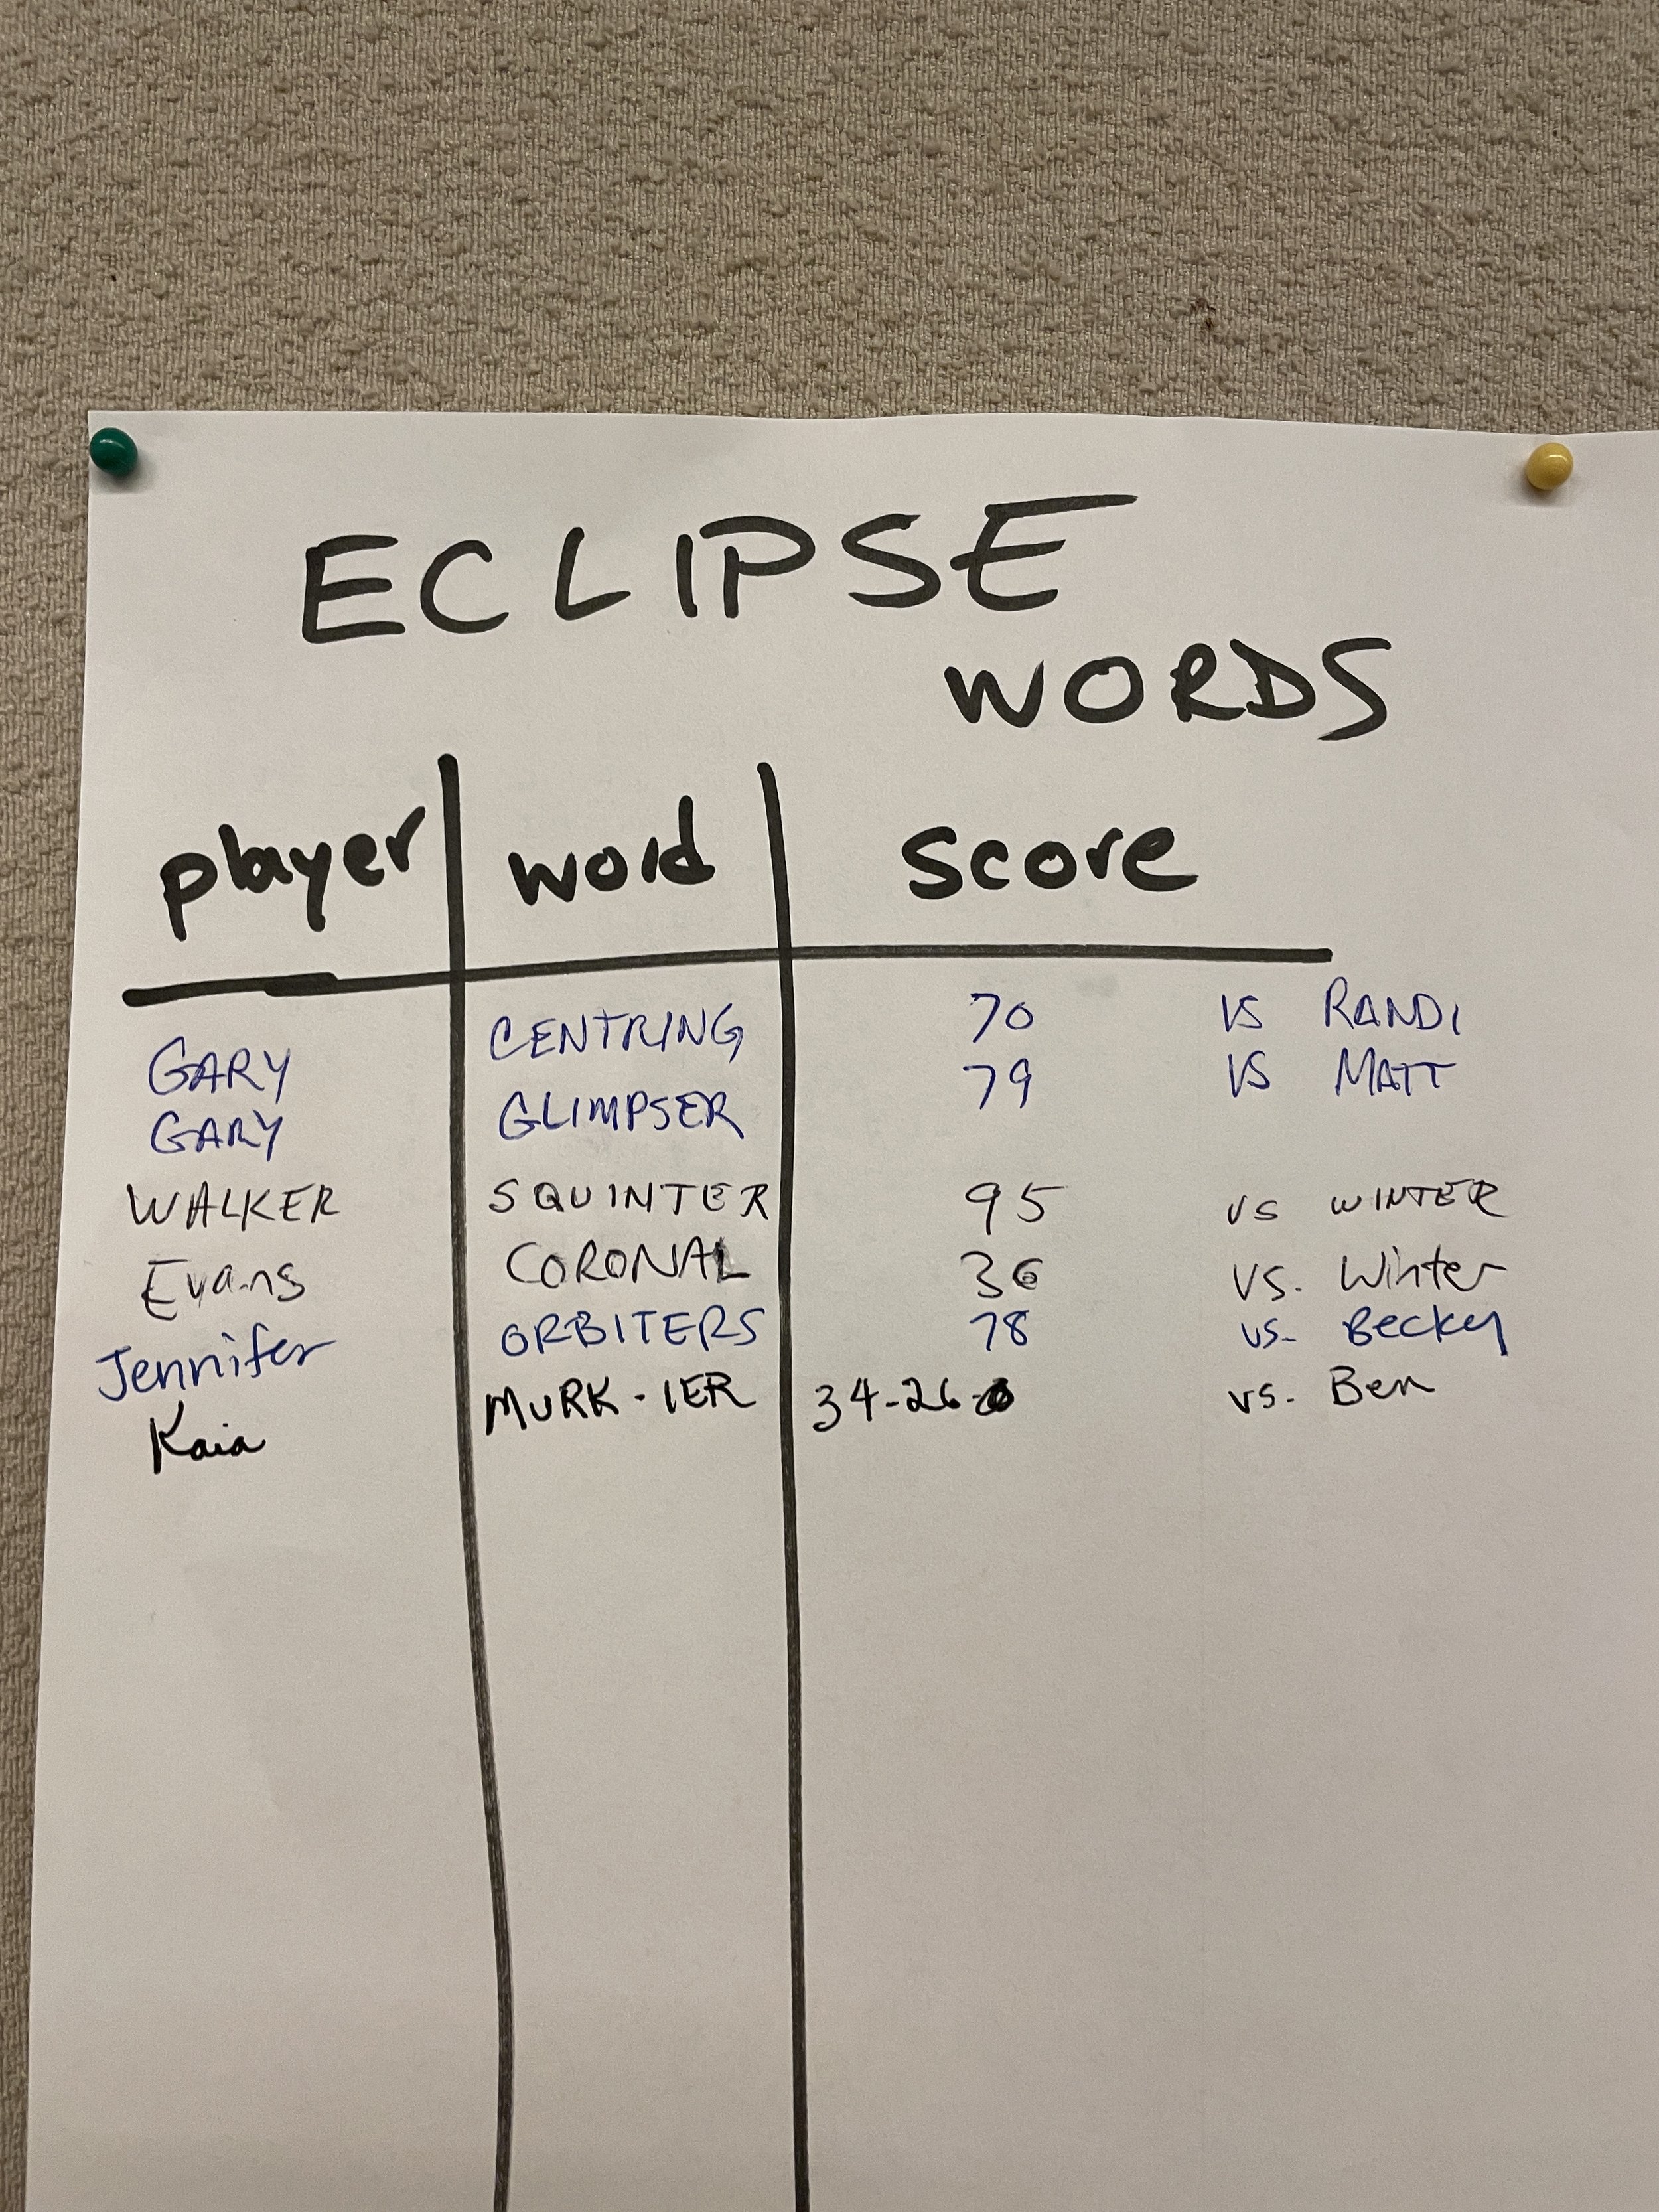 ECLIPSE
WORDS
player word score
GARY CENTRING 70 VS RANDI
GARY GLIMPSER 79 VS MATT
WALKER SQUINTER 95 VS WINTER
Evans CORONAL 36 VS. Winter
Jennifer ORBITERS 78 VS. Becky
Kaia MURK-IER 34-26- vs. Ben